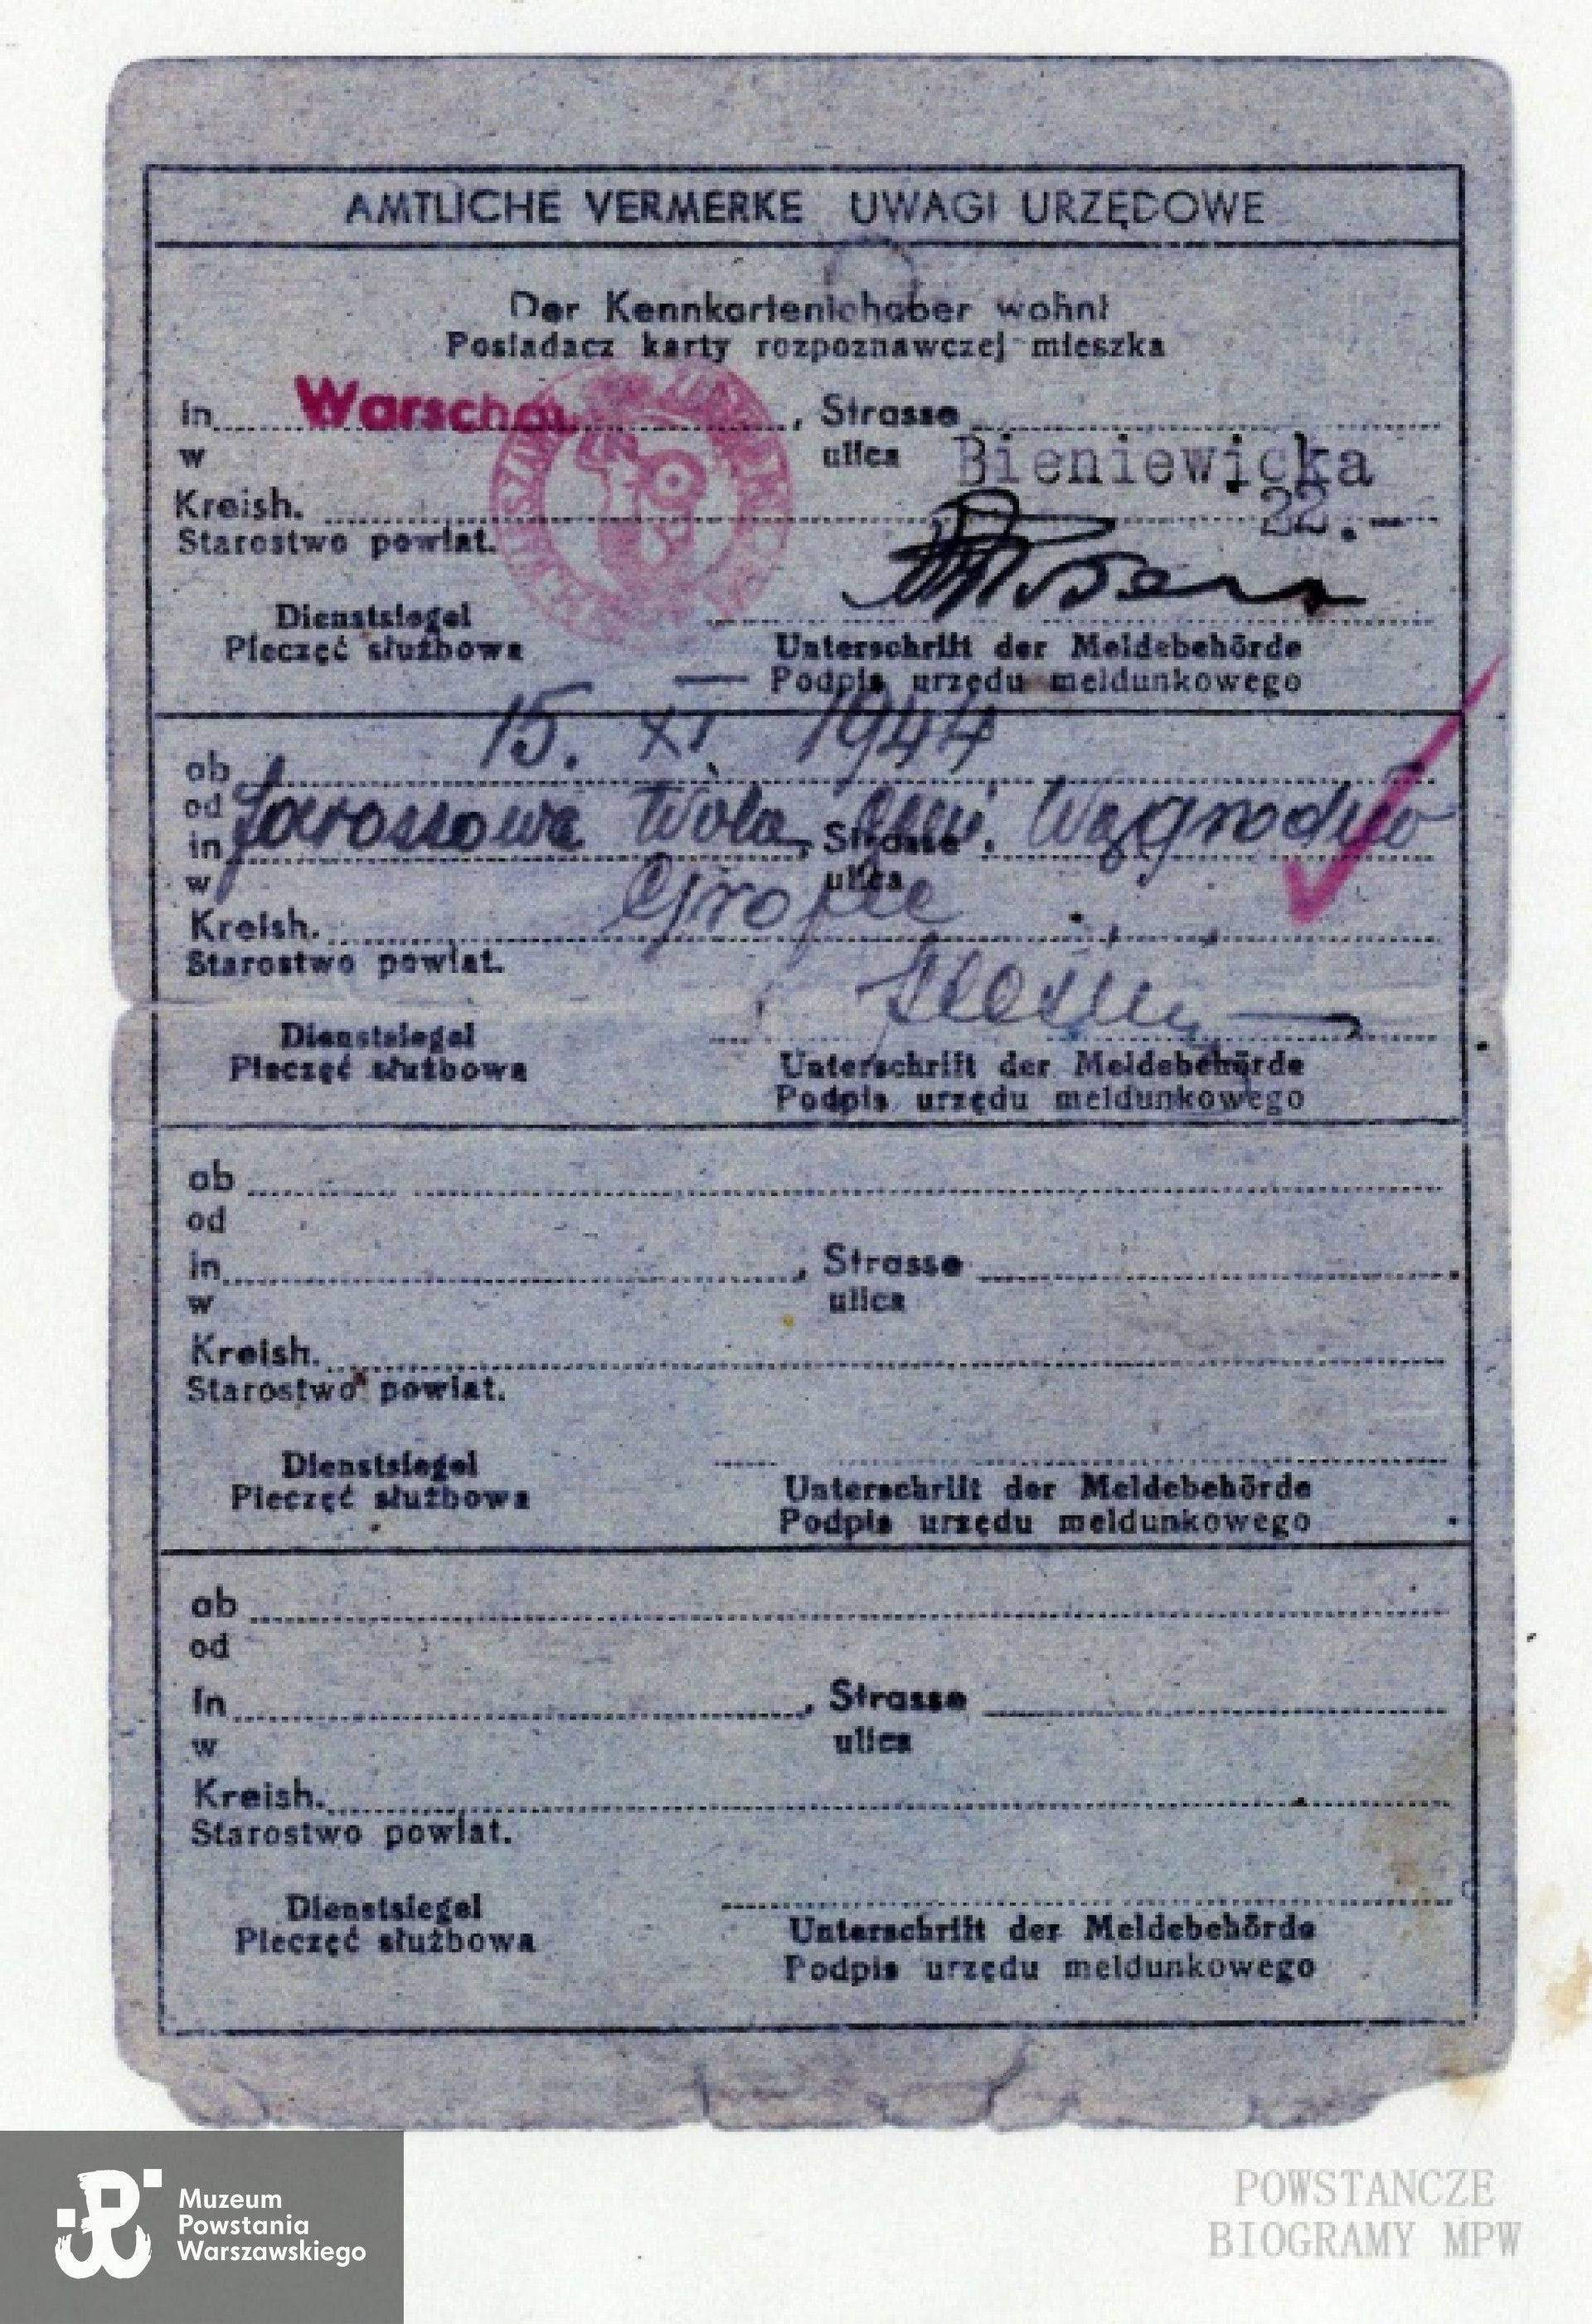 AMTLICHE VERMERKE UWAGI URZĘDOWE
Der Kennkarteninhaber wohnt
Posiadacz karty rozpoznawczej mieszka
in Warschau, Strasse
w ulica Bieniewicka
Kreish. 22.-
Starostwo powiat.
Dienstsiegel
Pieczęć służbowa
Unterschrift der Meldebehörde
Podpis urzędu meldunkowego
ab 15. XI 1944
od
in Jarossowa Wola, Strasse Gm. Wągrodno
w ulica
Kreish. Grojec
Starostwo powiat.
Dienstsiegel
Pieczęć służbowa
Unterschrift der Meldebehörde
Podpis urzędu meldunkowego
ab
od
in , Strasse
w ulica
Kreish.
Starostwo powiat.
Dienstsiegel
Pieczęć służbowa
Unterschrift der Meldebehörde
Podpis urzędu meldunkowego
ab
od
in , Strasse
w ulica
Kreish.
Starostwo powiat.
Dienstsiegel
Pieczęć służbowa
Unterschrift der Meldebehörde
Podpis urzędu meldunkowego
Muzeum
Powstania
Warszawskiego
POWSTAŃCZE
BIOGRAMY MPW